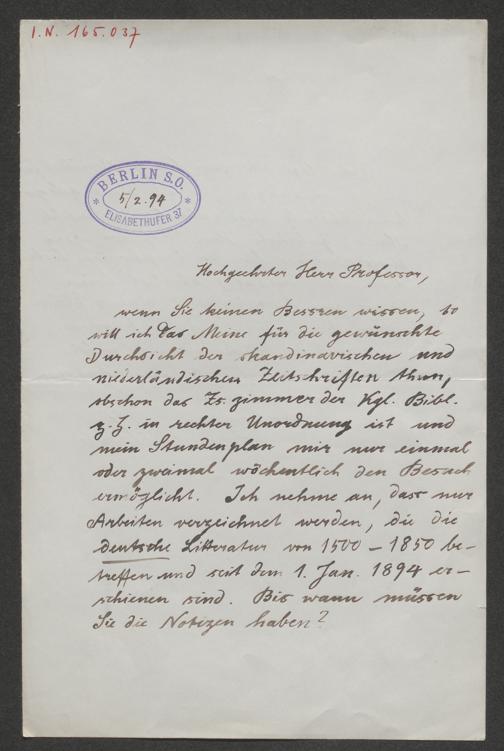 I.N. 165.037
BERLIN S.O.
5/2.94
* ELISABETHUFER 37 *
Hochgeehrter Herr Professor,
wenn Sie keinen Bessren wissen, so
will ich das Meine für die gewünschte
Durchsicht der skandinavischen und
niederländischen Zeitschriften thun,
obschon das Zs. zimmer der Kgl. Bibl.
z. Z. in rechter Unordnung ist und
mein Stundenplan mir nur einmal
oder zweimal wöchentlich den Besuch
ermöglicht. Ich nehme an, dass nur
Arbeiten verzeichnet werden, die die
deutsche Litteratur von 1500 – 1850 be-
treffen und seit dem 1. Jan. 1894 er-
schienen sind. Bis wann müssen
Sie die Notizen haben?